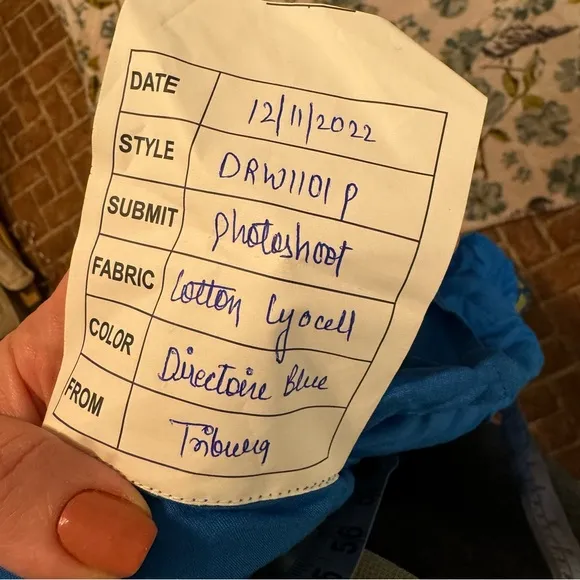 DATE 12/11/2022
STYLE DRW1101P
SUBMIT photoshoot
FABRIC Cotton lyocell
COLOR Directoire Blue
FROM Triburg
56